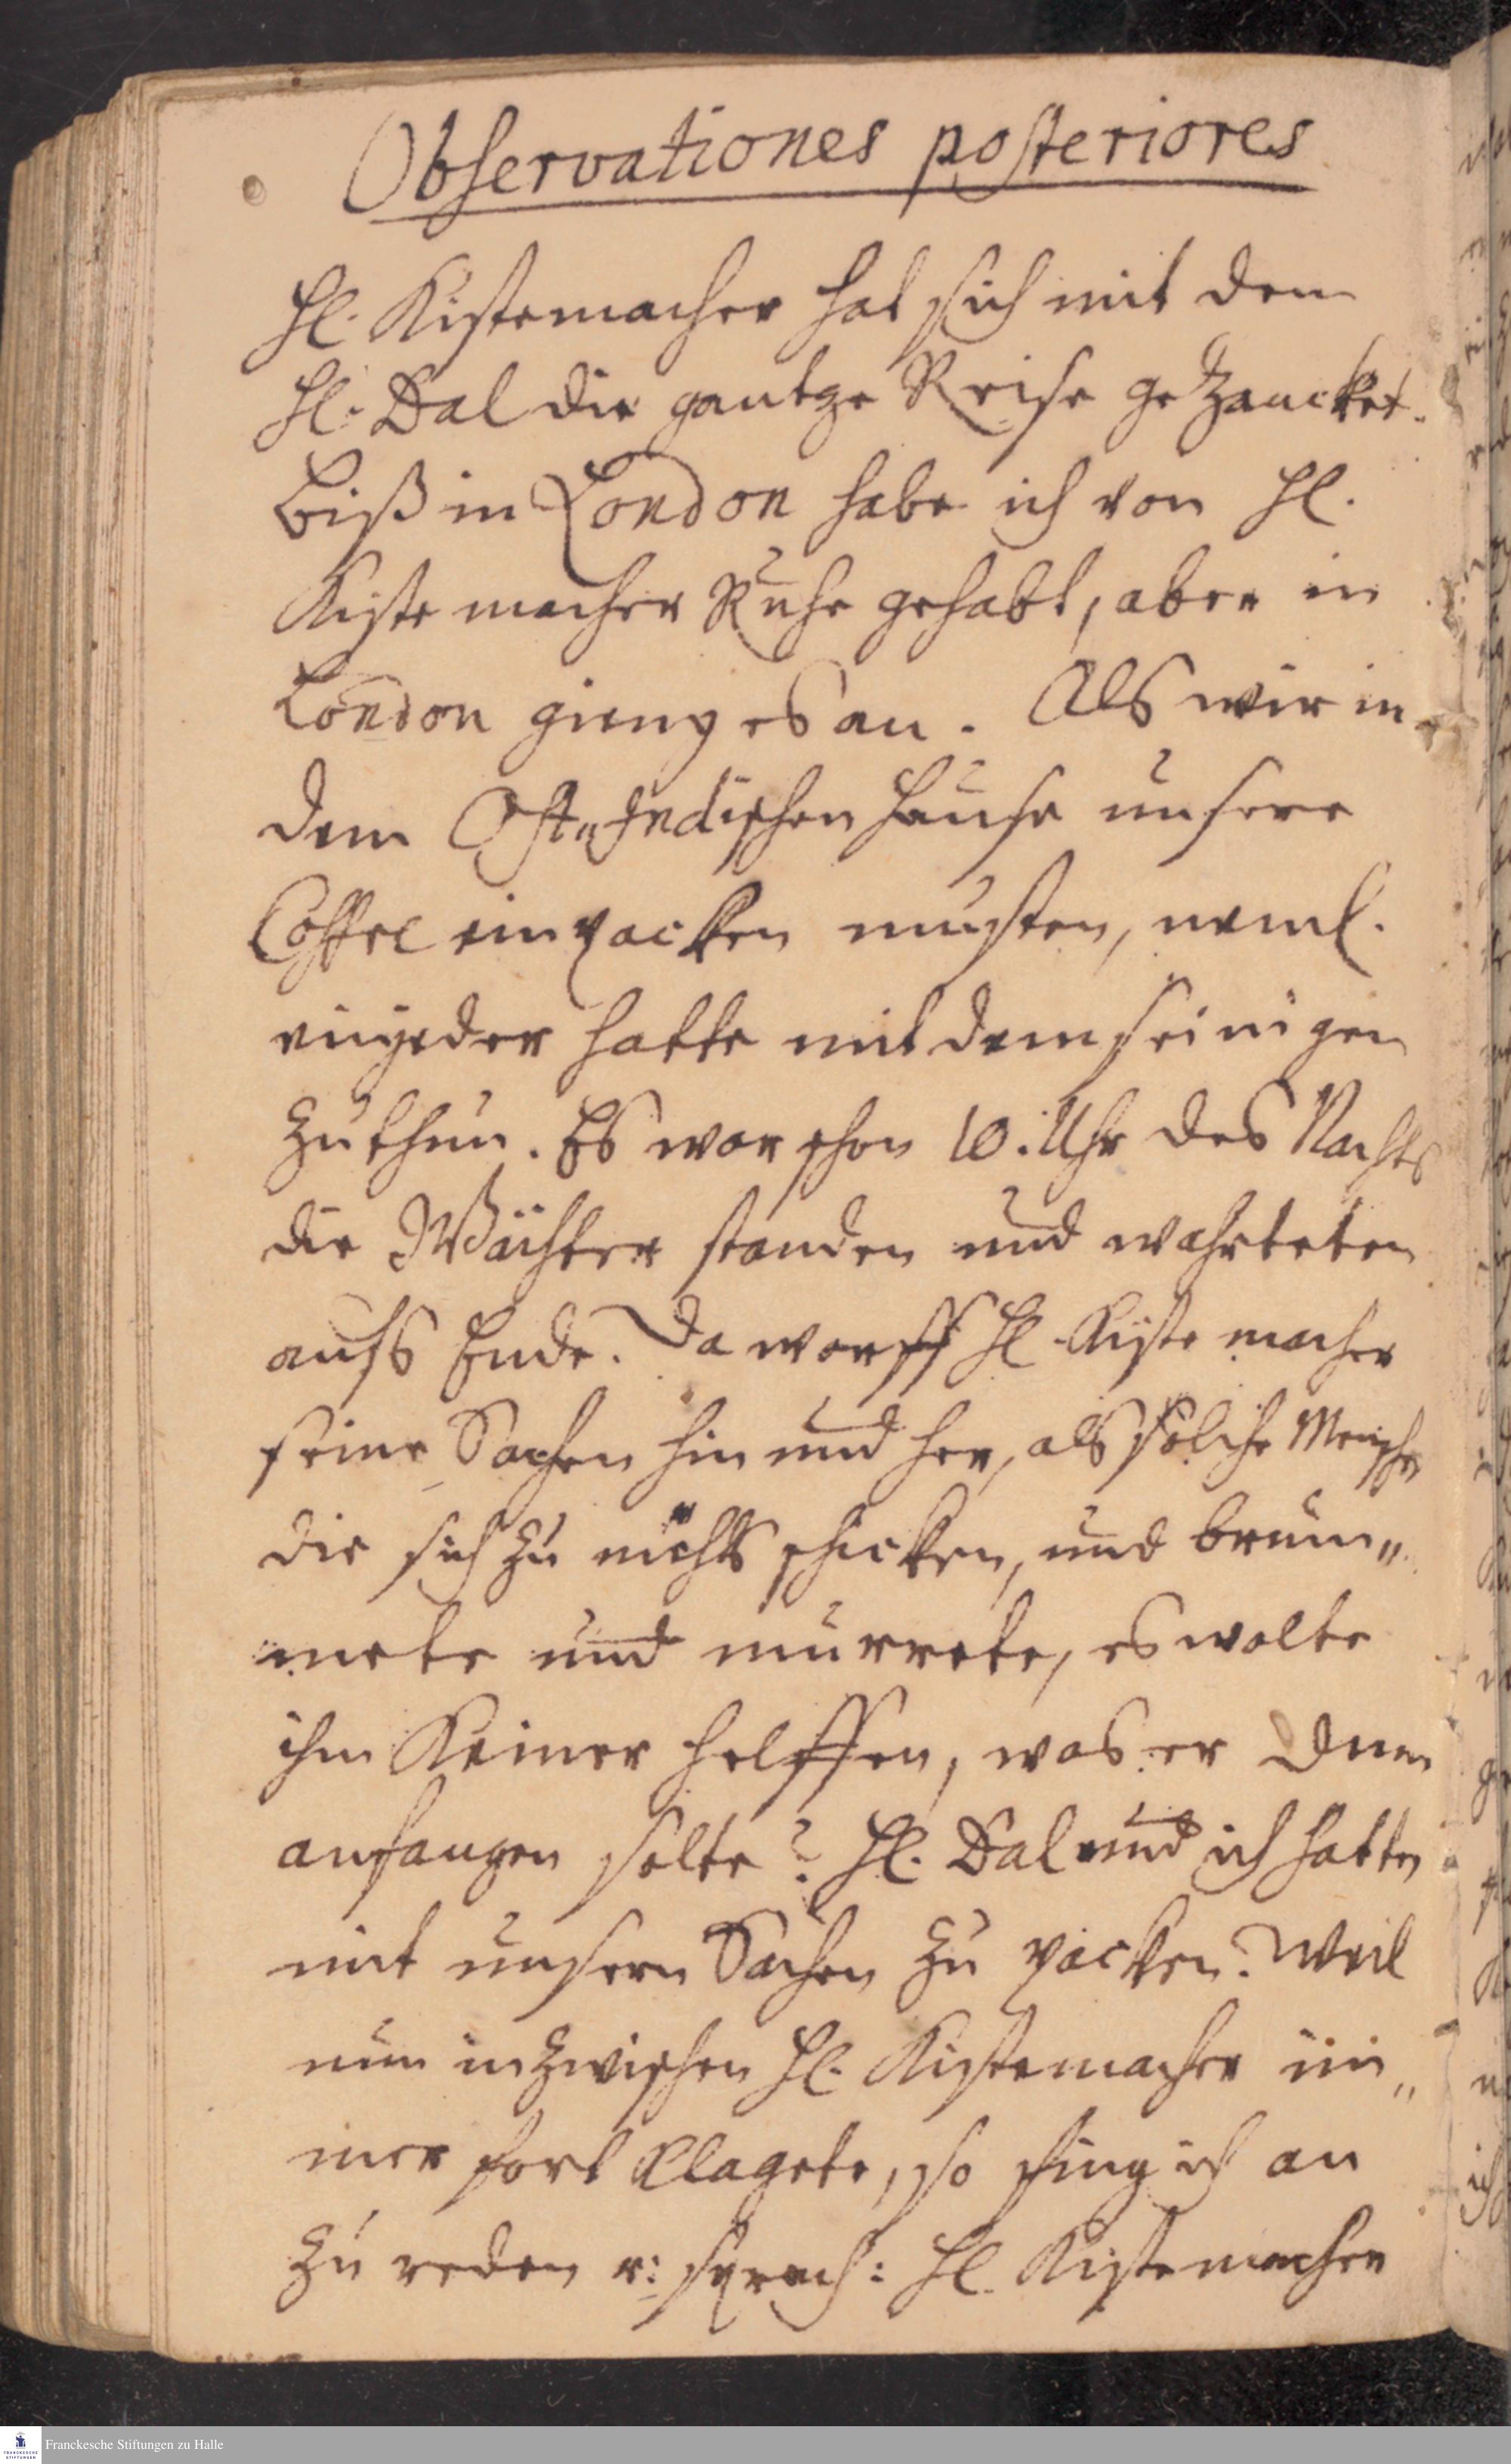 Observationes posteriores
H. Kistemacher hat sich mit dem
H. Dal die gantze Reise gezancket.
Biß in London habe ich von H.
Kistemacher Ruhe gehabt, aber in
London gieng es an. Als wir in
dem Ost„Indischen Hause unsere
Coffre einpacken musten, neml.
einjeder hatte mit dem seinigen
zuthun. Es war schon 10. Uhr des Nachts
die Wächter standen und wahrteten
aufs Ende. Da warff H. Kistemacher
seine Sachen hin und her, als solche Menschen
die sich zu nichts schicken, und brum„
mete und murrete, es wolte
ihm Keiner helffen, was er denn
anfangen solte? H. Dal und ich hatten
mit unsern Sachen zu packen. Weil
nun inzwischen H. Kistemacher im„
mer fort klagete, so fing ich an
zu reden u: sprach: H. Kistemacher
Franckesche Stiftungen zu Halle